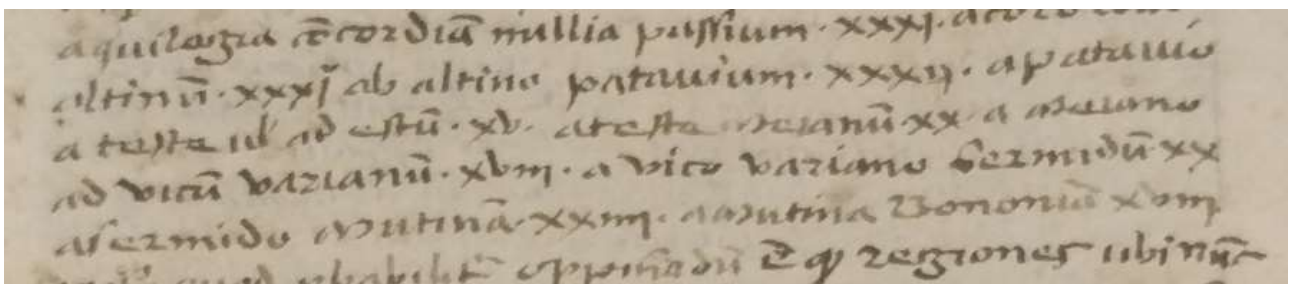 aquilegia cōcordiā millia passium · xxxj ·
altinū · xxxj ab altino patauium · xxxij · a patauio
a teste ul ad estū · xv · ateste aneianū xx · a aneiano
ad vicū varianū · xviij · a vico variano Sermidū xx
asermido mutinā · xxiiij · a mutina Bononiā xviij
oppinādū ē qͥ regiones ubi nūc